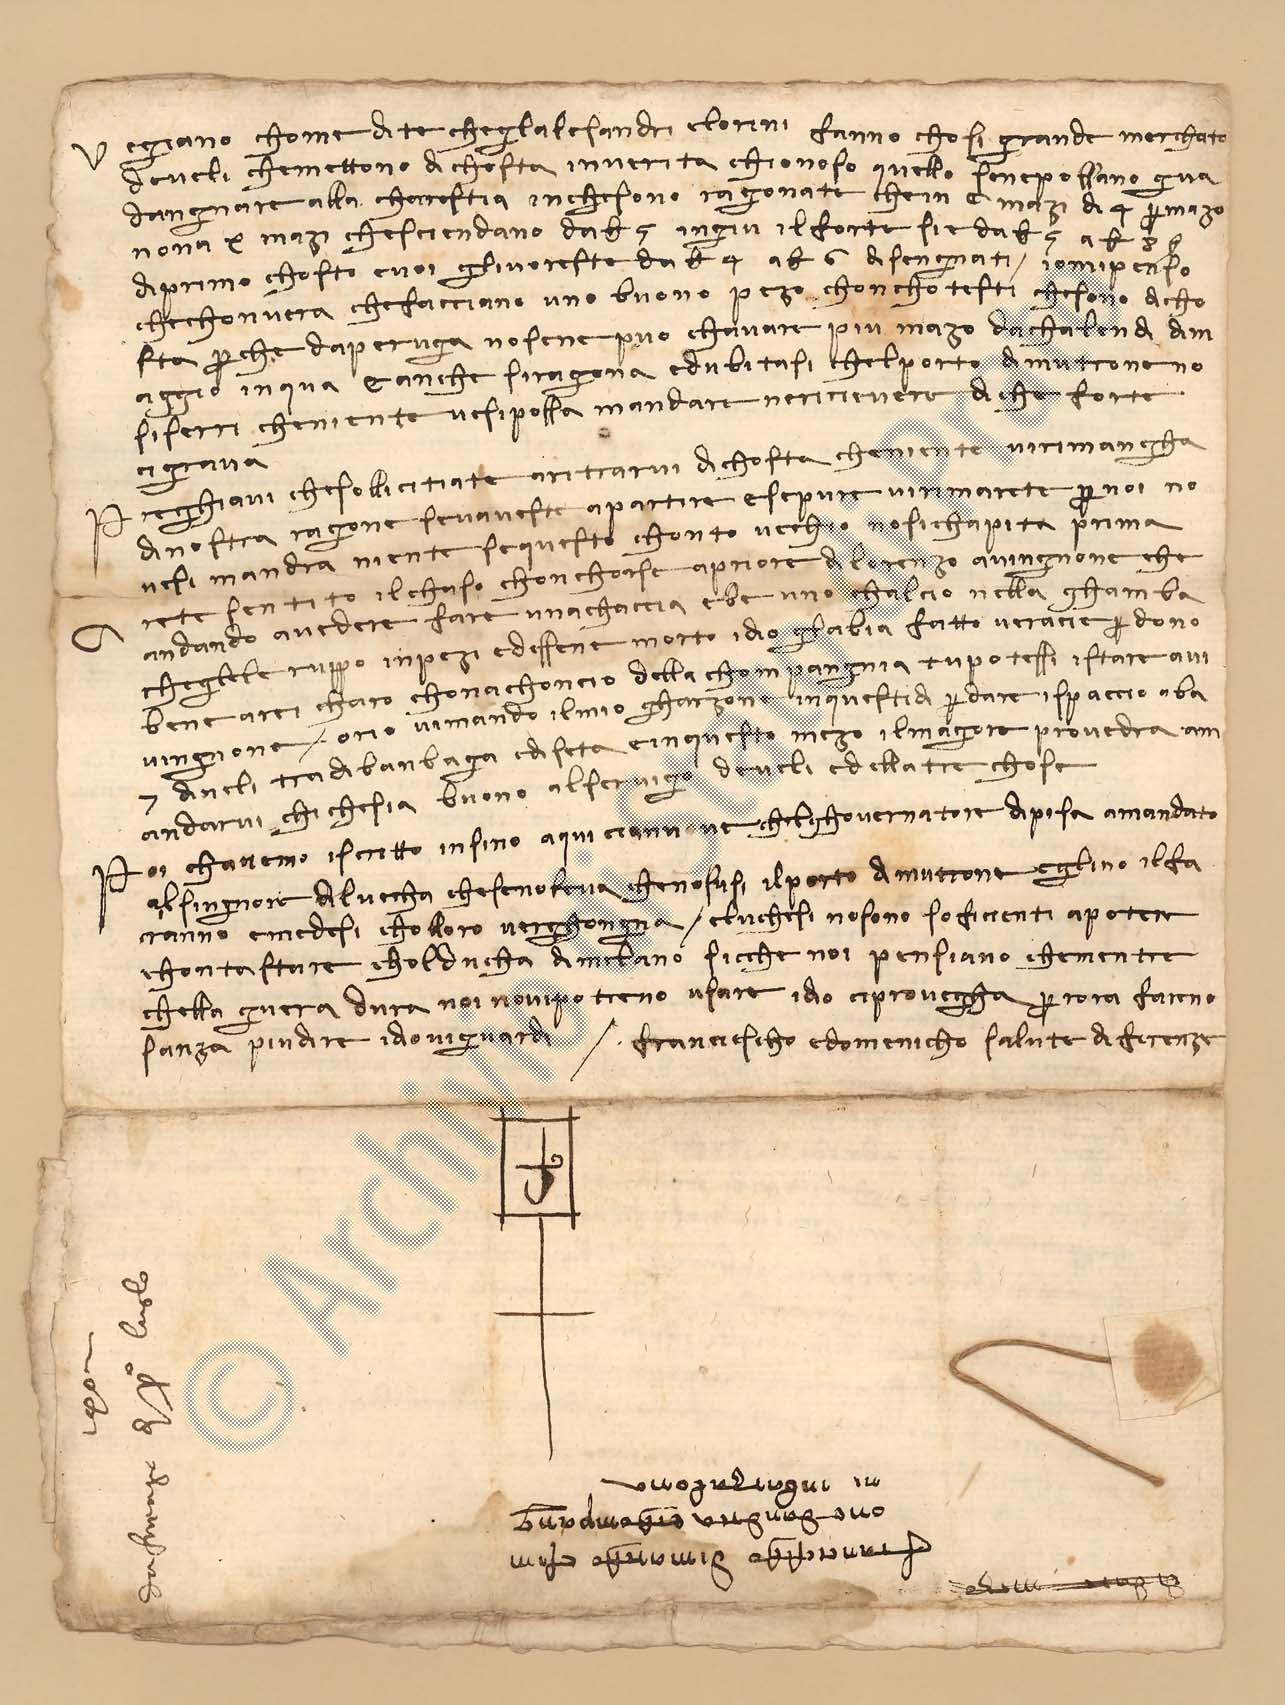 Vegiano chome dite chegllalesandri elorini fanno chosi grande merchato
develi chemettono di chosta inverita chionoso quello senepossano gua
dangnare alla charestia inchesono ragonate chein c mazi di 4 per mazo
nona x mazi chesciendano da k 5 ingiu ilforte sie da k 5 a k 8
di primo chosto evoi glivoreste da k 4 a k 6 disengnati / iomipenso
chechonvera chefacciano uno buono pezo chonchotesti chesono dicho
sta perche daperuga nosene puo chavare piu mazo dachalendi dim
aggio inqua e anche siragona edubitasi chelporto di mutrone no
siserri cheniente vesipossa mandare nericievere di che forte
cigrava
Preghiavi chesollicitiate aritrarvi dichosta cheniente virimangha
dinostra ragone sevaveste apartire esepure virimarete per noi no
vesi mandra niente sequesto chonto vechio nosichapita prima
rete sentito ilchaso chonchorse apriore di lorenzo avingnone che
andando avedere fare unachaccia ebe uno chalcio nella ghamba
cheglele ruppo inpezi edessene morto idio gliabia fatto veracie perdono
bene arei charo chonachoncio della chompangnia tu potessi istare avi
vingnone / orio vimando ilmio gharzone inquestidi perdare ispaccio aba
7 di veli tra di banbaga edi seta einquesto mezo ilmagore provedra am
andarvi chichesia buono alservigo develi edellatre chose
Poi chavemo iscritto insino aqui cianno ve chelghovernatore di pisa amandato
alsingnore di lucha chesenoleva chenosusi ilporto di mutrone eglino ilfa
ranno emedesi cholloro verghongna / eluchesi nosono soficienti apotere
chontastare cholducha dimelano sicche noi pensiano chementre
chella guera dura noi novipotreno usare idio ciprovegha per rora fareno
sanza piu dire idio vi guardi / franciescho edomenicho salute di firenze
Franciescho di marcho e chon
one
in
da firenze
luglo